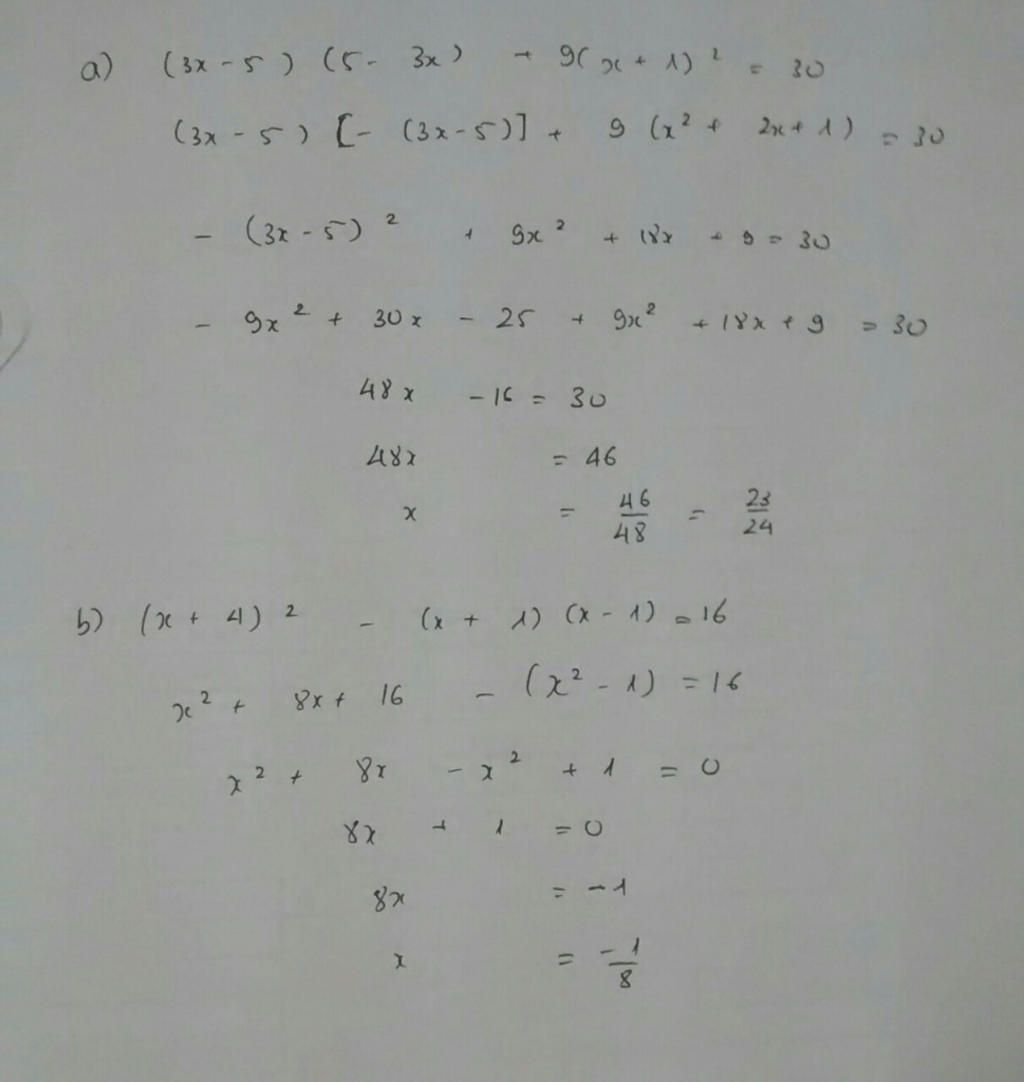 a) (3x - 5) (5 - 3x) + 9(x + 1)² = 30
(3x - 5) [- (3x - 5)] + 9 (x² + 2x + 1) = 30
- (3x - 5)² + 9x² + 18x + 9 = 30
- 9x² + 30x - 25 + 9x² + 18x + 9 = 30
48x - 16 = 30
48x = 46
x = 46/48 = 23/24
b) (x + 4)² - (x + 1) (x - 1) = 16
x² + 8x + 16 - (x² - 1) = 16
x² + 8x - x² + 1 = 0
8x + 1 = 0
8x = -1
x = -1/8